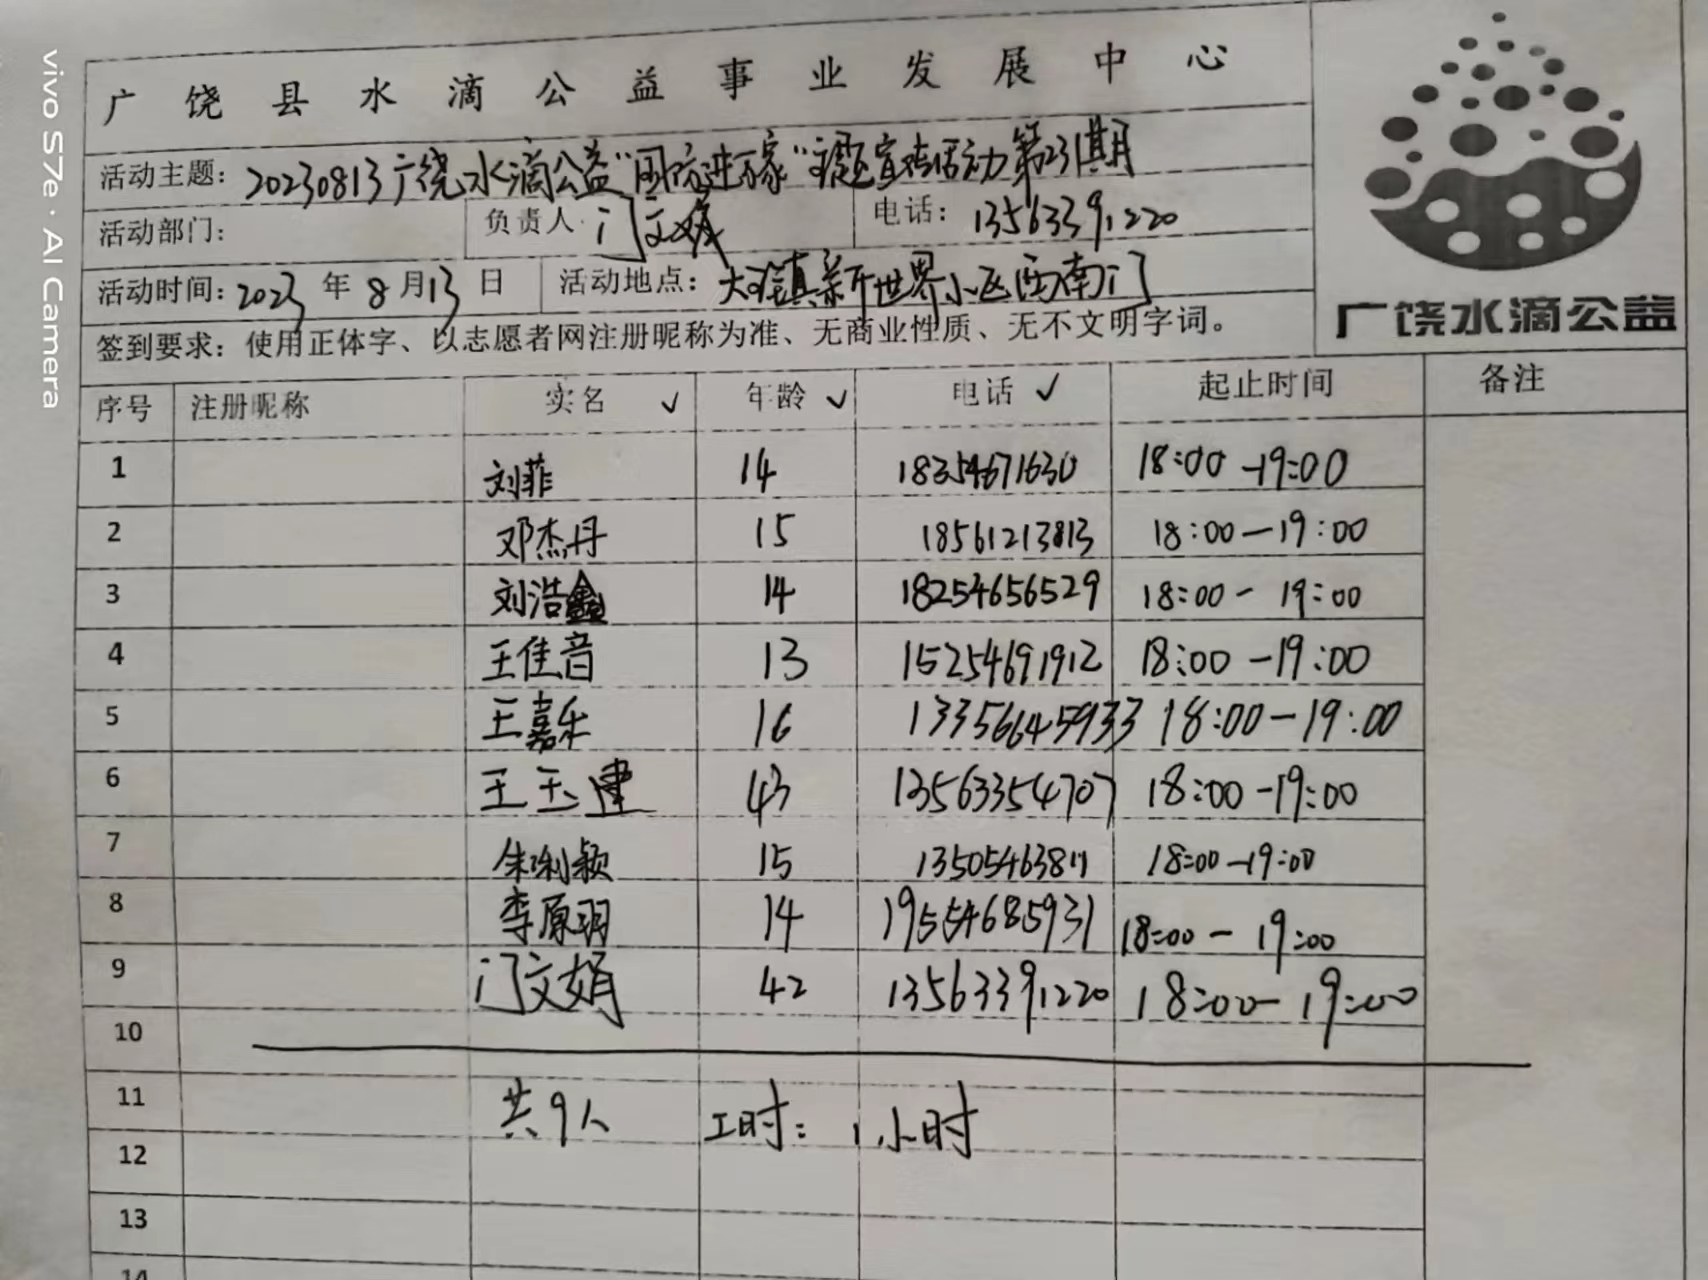 广饶县水滴公益事业发展中心
活动主题：20230813广饶水滴公益"国防进万家"主题宣传活动第231期
活动部门： 负责人：门文娟 电话：13563391220
活动时间：2023年8月13日 活动地点：大王镇新世界小区西南门
签到要求：使用正体字、以志愿者网注册昵称为准、无商业性质、无不文明字词。
广饶水滴公益
序号 注册昵称 实名 ✓ 年龄 ✓ 电话 ✓ 起止时间 备注
1 刘菲 14 18354671630 18:00-19:00
2 邓杰丹 15 18561213813 18:00-19:00
3 刘浩鑫 14 18254656529 18:00-19:00
4 王佳音 13 15254691912 18:00-19:00
5 王嘉乐 16 13356645933 18:00-19:00
6 王玉建 43 13563354707 18:00-19:00
7 朱俐颖 15 13505463811 18:00-19:00
8 李原羽 14 19554685931 18:00-19:00
9 门文娟 42 13563391220 18:00-19:00
10
11 共9人 工时：1小时
12
13
14
vivo S7e · AI Camera